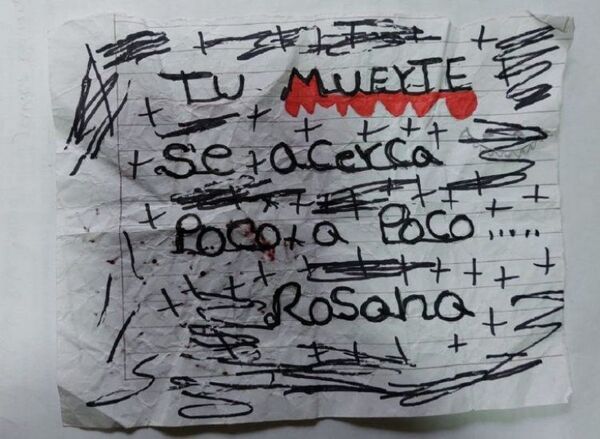 TU MUERTE
se acerca
Poco a Poco.....
Rosana